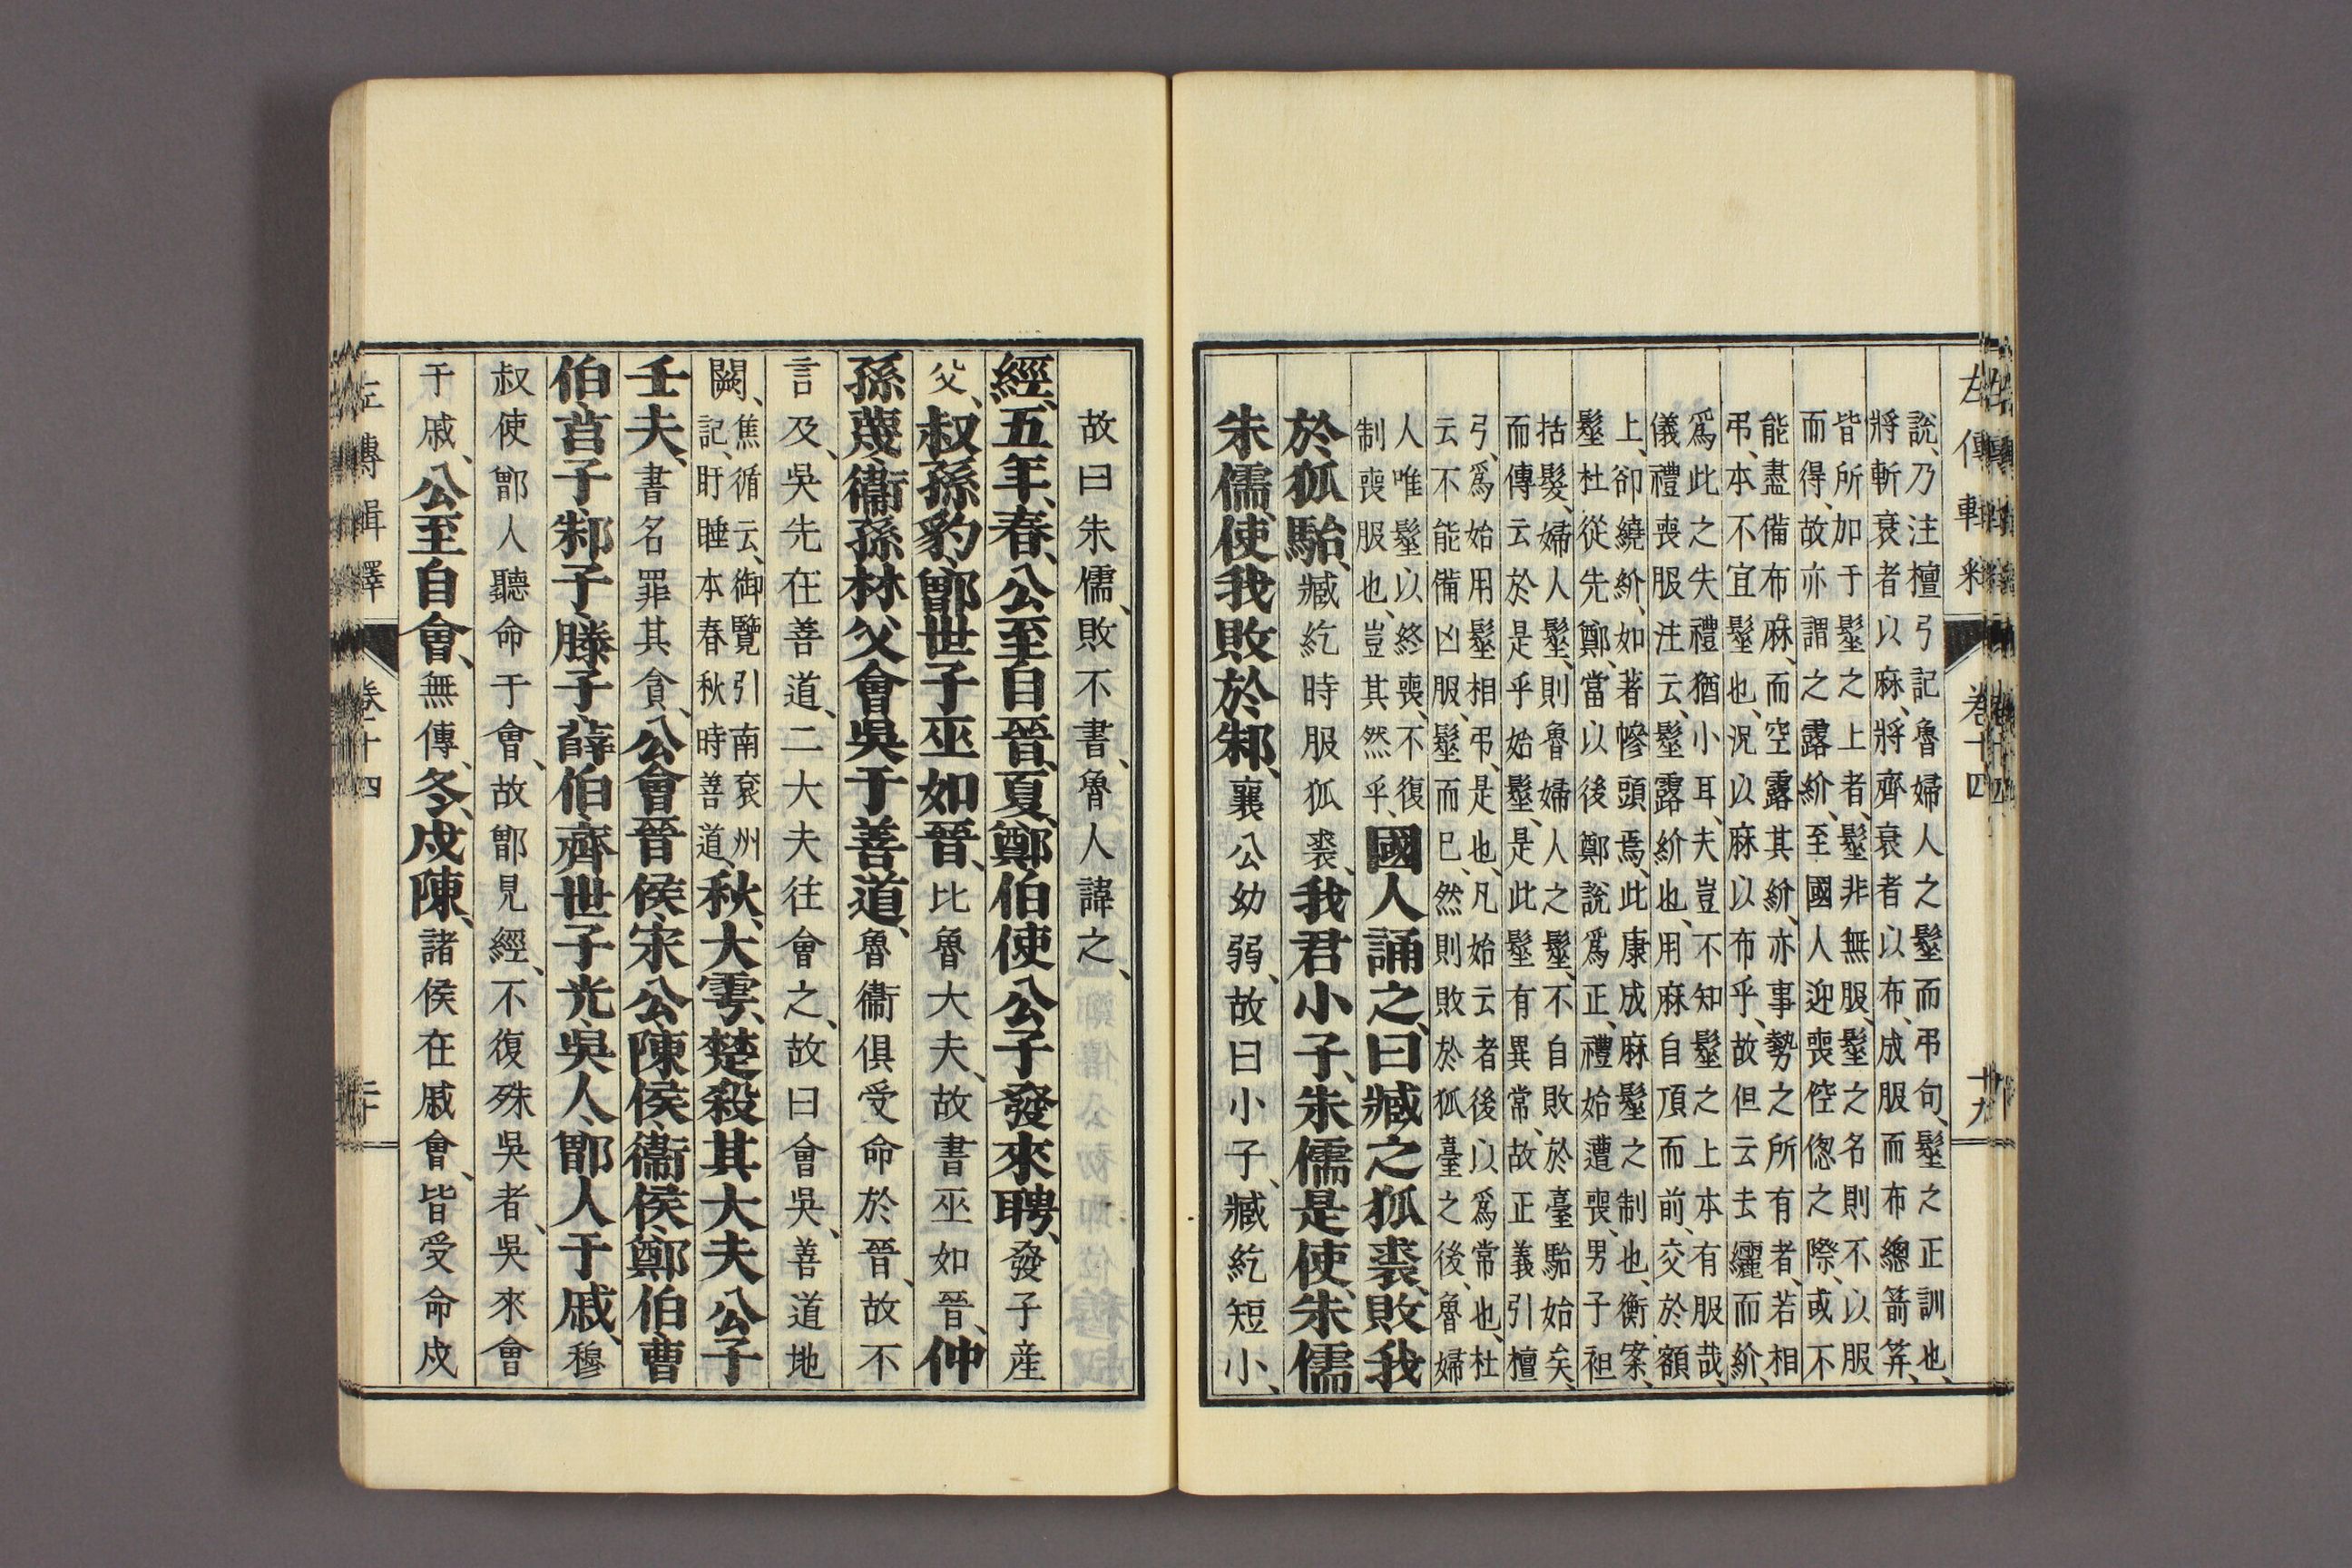 左傳輯釋 卷十四 十九
說、乃注檀弓記魯婦人之髽而弔句、髽之正訓也、
將斬衰者以麻、將齊衰者以布、成服而布總箭筓、
皆所加于髽之上者、髽非無服、髽之名則不以服
而得、故亦謂之露紒、至國人迎喪倥偬之際、或不
能盡備布麻、而空露其紒、亦事勢之所有者、若相
弔、本不宜髽也、況以麻以布乎、故但云去纚而紒、
爲此之失禮猶小耳、夫豈不知髽之上本有服哉、
儀禮喪服注云、髽露紒也、用麻自頂而前、交於額
上、卻繞紒、如著幓頭焉、此康成麻髽之制也、衡案、
髽杜從先鄭、當以後鄭說爲正、禮始遭喪、男子袒
括髮、婦人髽、則魯婦人之髽、不自敗於臺駘始矣、
而傳云於是乎始髽、是此髽有異常、故正義引檀
弓、爲始用髽相弔、是也、凡始云者後以爲常也、杜
云不能備凶服、髽而已、然則敗於狐臺之後、魯婦
人唯髽以終喪、不復
制喪服也、豈其然乎、國人誦之、曰臧之狐裘、敗我
於狐駘、臧紇時服狐裘、我君小子、朱儒是使、朱儒
朱儒、使我敗於邾、襄公幼弱、故曰小子、臧紇短小、
故曰朱儒、敗不書、魯人諱之、
經、五年、春、公至自晉、夏、鄭伯使公子發來聘、發子産
父、叔孫豹、鄫世子巫如晉、比魯大夫、故書巫如晉、仲
孫蔑、衞孫林父會吳于善道、魯衞俱受命於晉、故不
言及、吳先在善道、二大夫往會之、故曰會吳、善道地
闕、焦循云、御覽引南兗州
記、盱眙本春秋時善道、秋、大雩、楚殺其大夫公子
壬夫、書名罪其貪、公會晉侯、宋公、陳侯、衞侯、鄭伯、曹
伯、莒子、邾子、滕子、薛伯、齊世子光、吳人、鄫人于戚、穆
叔使鄫人聽命于會、故鄫見經、不復殊吳者、吳來會
于戚、公至自會、無傳、冬、戍陳、諸侯在戚會、皆受命戍
左傳輯釋 卷十四 二十